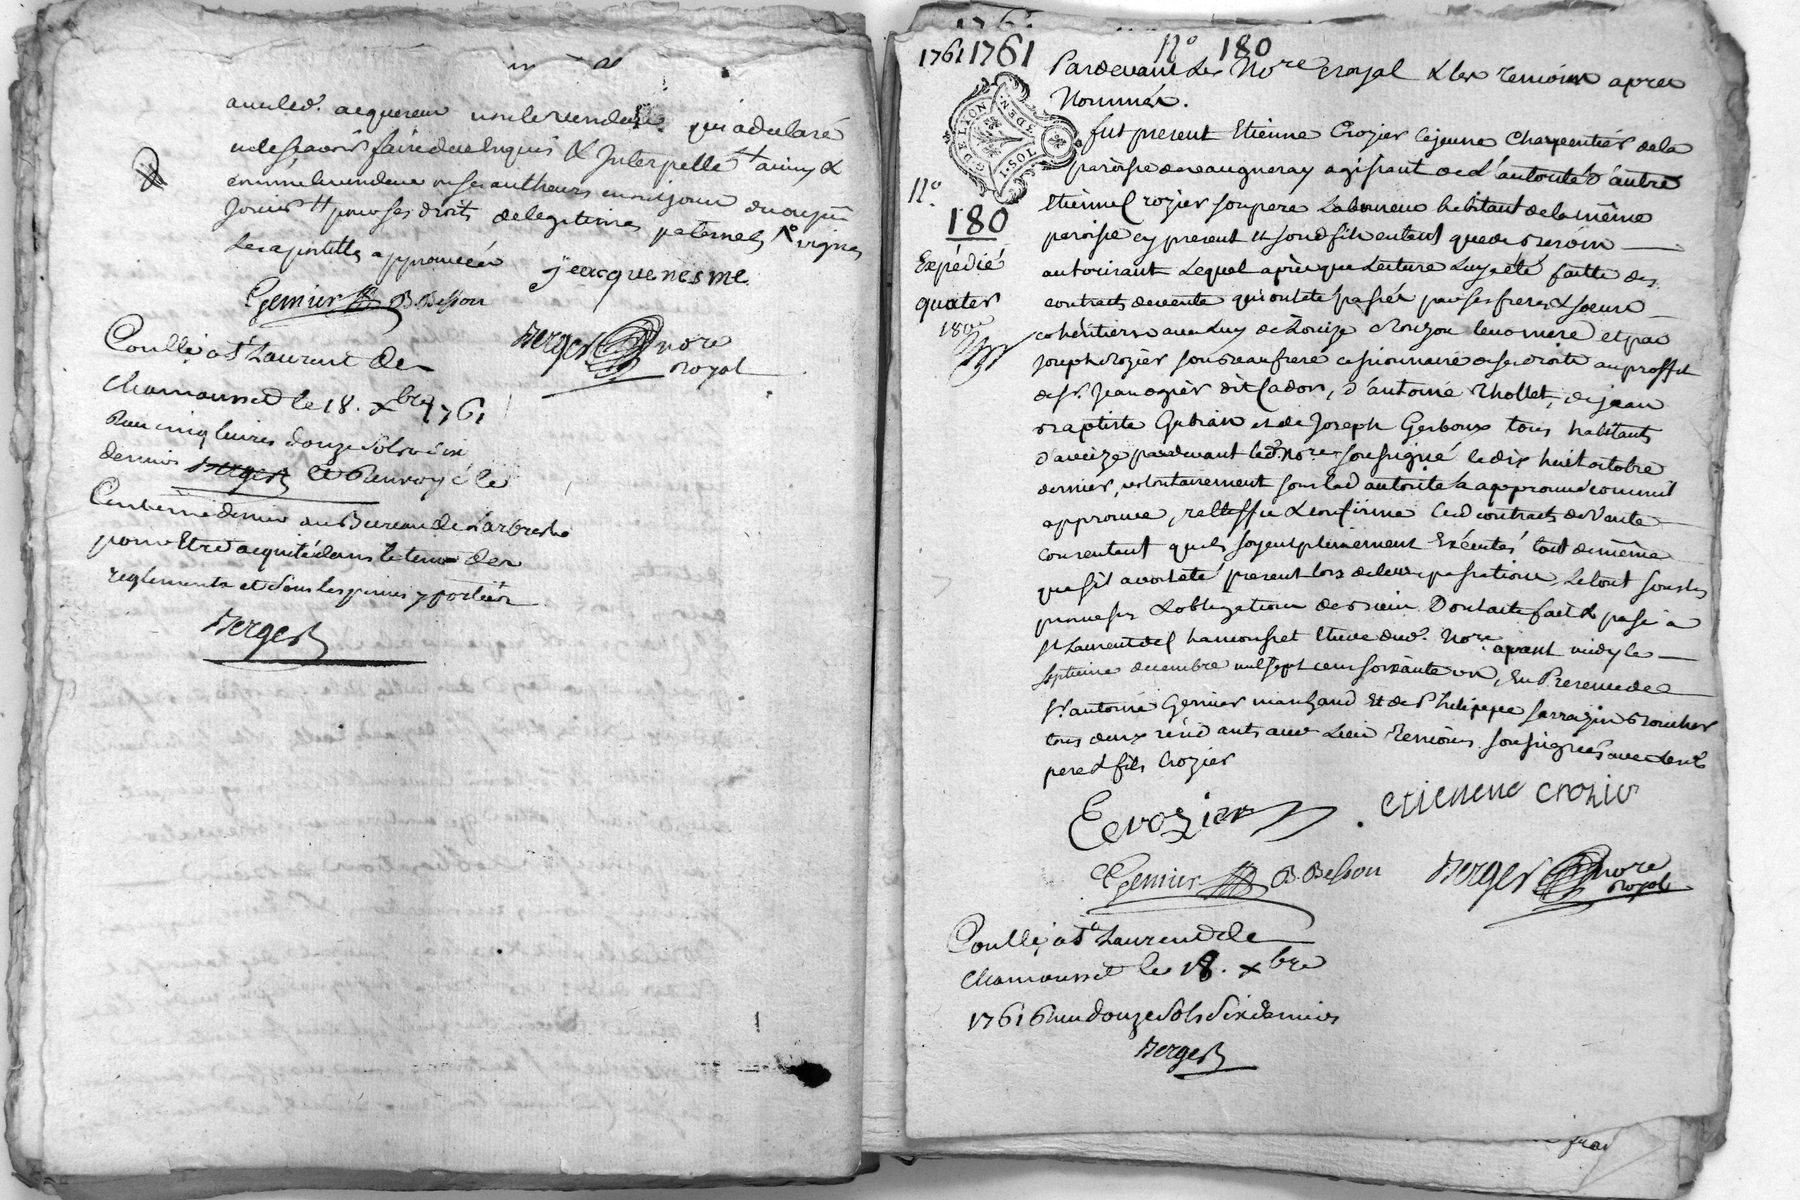 avec led. acquereur non le vendeur qui a declaré
ne le sçavoir faire de ce Enquis & Interpellé ainsy &
comme le vendeur ses autheurs en ont joui
pour ses droits de legitimes paternels vignes
Les apostilles approuvéés jeacque nesme
Gernier B. Besson
Berger nore
royal
Conllé a St Laurent de
Chamousset le 18. xbre 1761
Reçu cinq livres douze sols six
deniers Berger et Renvoyé le
Centieme denier au Bureau de Larbresle
pour Etre acquité dans le tems des
reglements et sous les peines y portéés
Berger
1761 1761 No 180
Pardevant Le Nore royal & les temoins apres
Nommés.
G. DE LYON
fut present Etienne Crozier le jeune Charpentier de la
paroisse de vaugneray agissant de L'autorité d'autre
Etienne Crozier son pere Laboureur habitant de la même
paroisse cy present et son d. fils entant que de besoin
autorisant Lequel après que Lecture Luy a eté faitte des
contracts de vente qui ont eté passéé par ses freres & soeurs
coheritiers avec Luy de Loüize leur mere et par
Joseph Crozier son beaufrere cessionnaire de ses droits au proffit
de sr. Jean ogier dit Cadon, d'antoine Thollet, de jean
baptiste Gubian et de Joseph Gerboux tous habitants
d'aveize pardevant led. nore soussigné le dix huit octobre
dernier, volontairement sous lad autorité a approuvé comme il
approuve, rattiffie & confirme Lesd contracts de Vente
consentant quils soyent pleinement Exécutés tout de même
que s'il avoit eté present lors de leur passation, Le tout sous les
promesses & obligations de bien. Dont acte fait & passé à
St Laurent de Chamousset Etude dud. Nore avant midy le
septieme decembre mil sept cent soixante un, En Presence de
sr. antoine Gernier marchand Et de Philippe Sarrazin Boucher
tous deux résidants aud Lieu Temoins soussignés avec Lesd
pere & fils Crozier
No.
180
Expédié
quater
180
E Crozier etienene crozier
Gernier B. Besson Berger nore
royal
Conllé a St Laurent de
Chamousset le 18. xbre
1761 Reçu douze sols six deniers
Berger